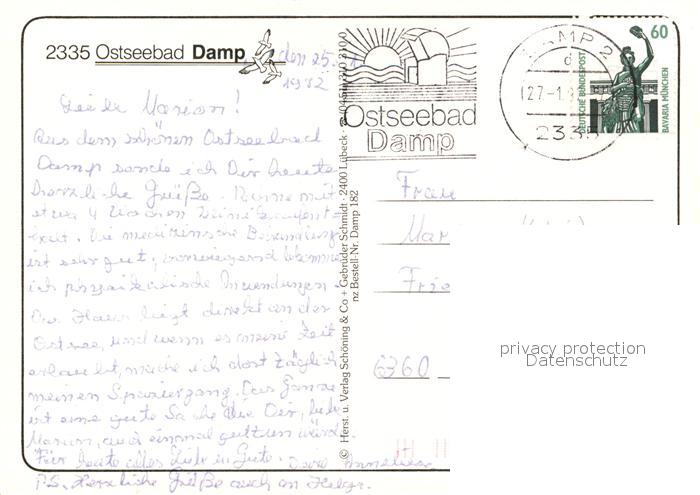 2335 Ostseebad Damp
den 25. 1.
1992
Liebe Marion!
Aus dem schönen Ostseebad
Damp sende ich Dir heute
herzliche Grüße. Rechne mit
etwa 4 Wochen Kuraufent=
halt. Die medizinische Behandlung
ist sehr gut, vorwiegend bekomme
ich physikalische Anwendungen.
Das Haus liegt direkt an der
Ostsee, und wenn es meine Zeit
erlaubt, mache ich dort täglich
meinen Spaziergang. Das Ganze
ist eine gute Sache die Dir, liebe
Marion, auch einmal gut tun würde.
Für heute alles Liebe u. Gute. Deine Anneliese
P.S. Herzliche Grüße auch an Helga.
© Herst. u. Verlag Schöning & Co + Gebrüder Schmidt · 2400 Lübeck
nz Bestell-Nr. Damp 182
Ostseebad
Damp
DAMP 2
d
27.-1.
2335
60
DEUTSCHE BUNDESPOST
BAVARIA MÜNCHEN
Frau
Mar
Frie
6360
privacy protection
Datenschutz